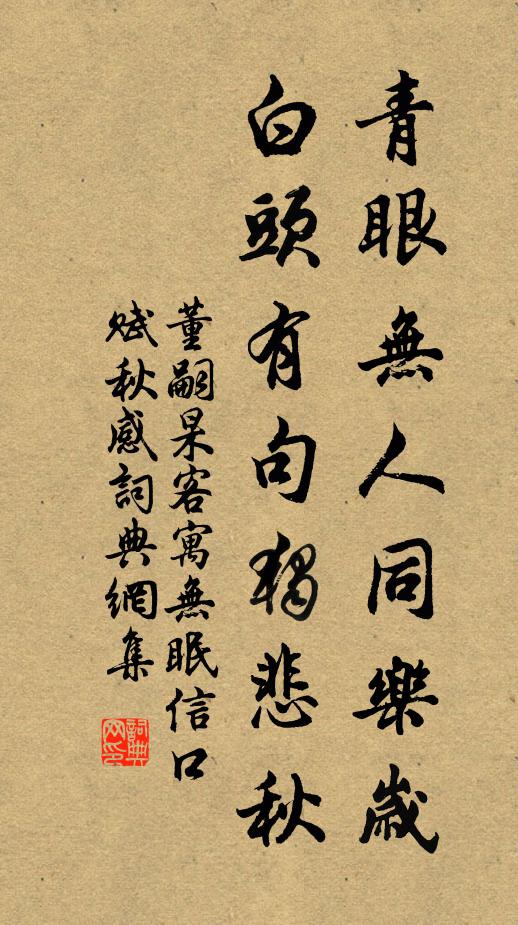 青眼無人同樂歲
白頭有句獨悲秋
董嗣杲客寓無眠信口
賦秋感詞典網集
詞典
网印